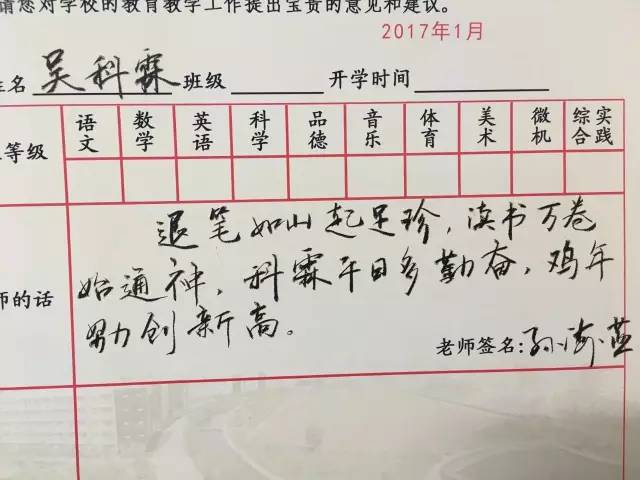 请您对学校的教育教学工作提出宝贵的意见和建议。
2017年1月
姓名 吴科霖 班级 开学时间
等级 语文 数学 英语 科学 品德 音乐 体育 美术 微机 综合实践
师的话
退笔如山起足珍，读书万卷
始通神，科霖平日多勤奋，鸡年
努力创新高。
老师签名：孙海蓝